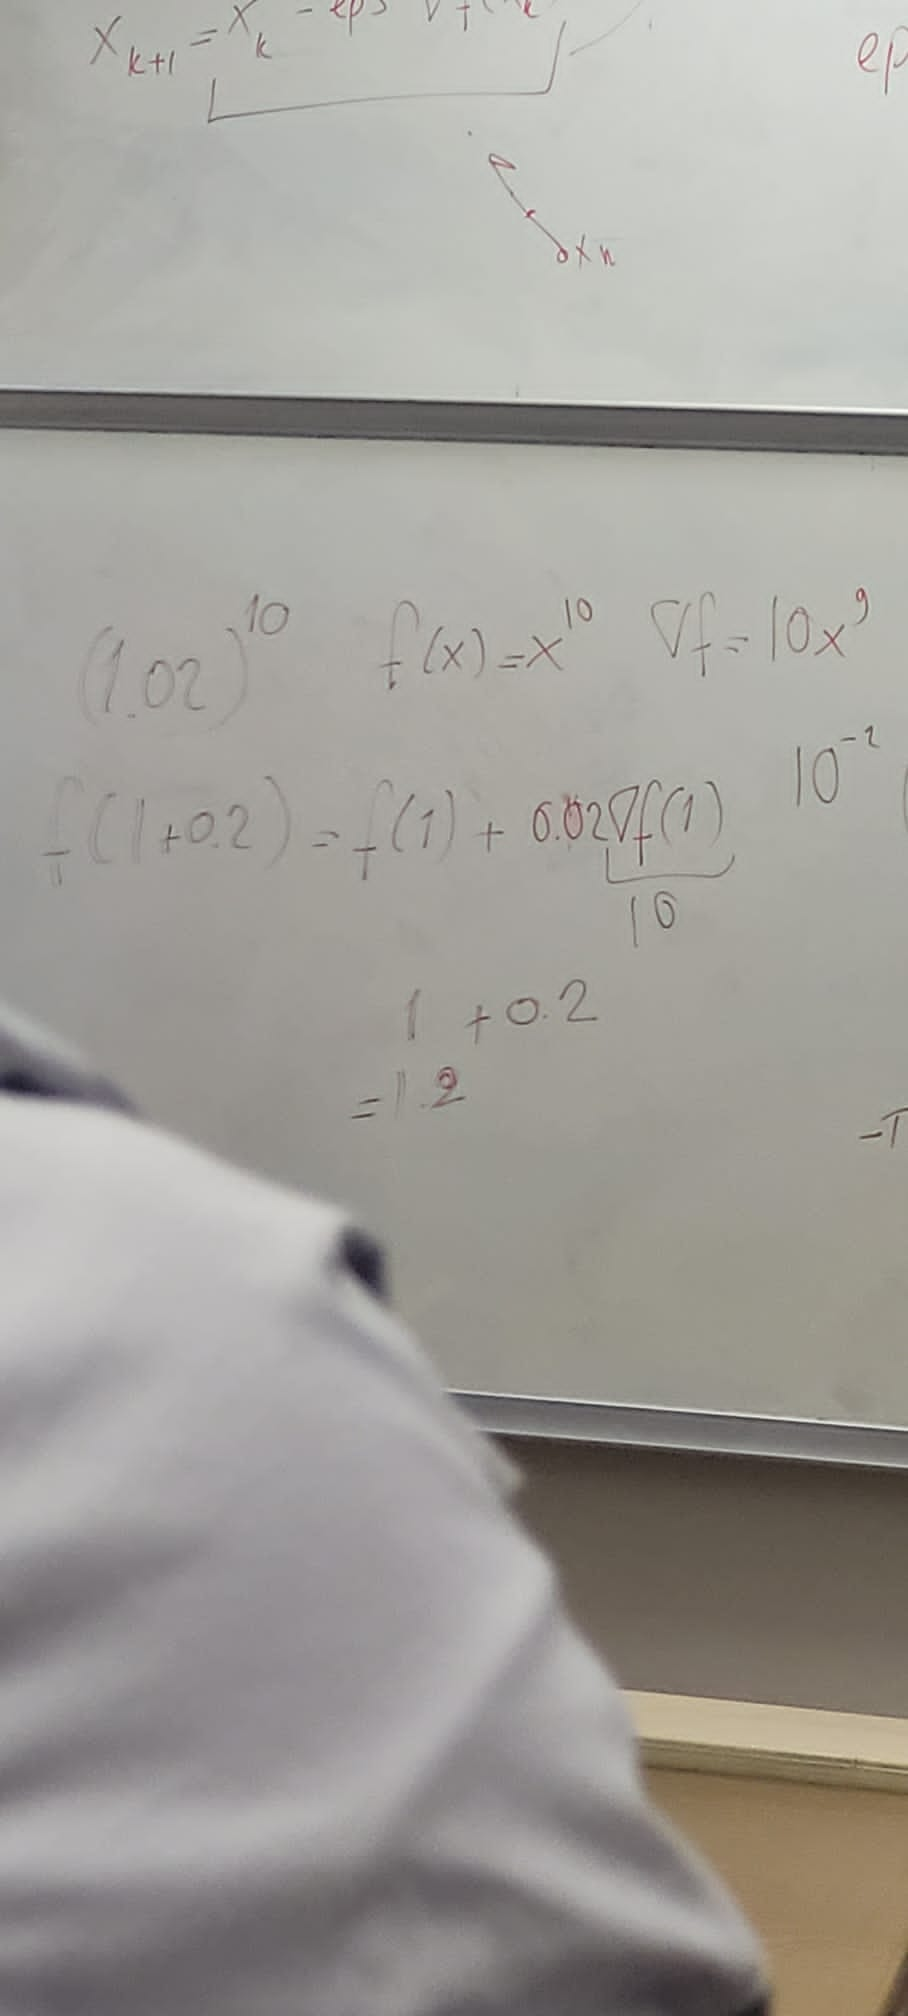 x_{k+1} = x_k - eps ∇f(x_k
ep
x_n
(1.02)^{10} f(x) = x^{10} ∇f = 10x^9
f(1+0.2) = f(1) + 0.02∇f(1) 10^{-2}
10
1 + 0.2
= 1.2